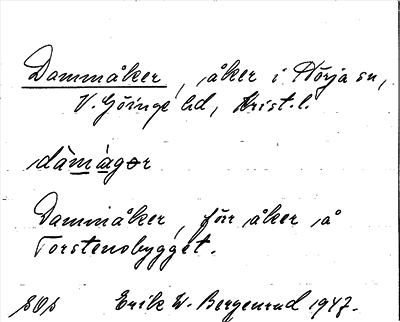 Dammåker, åker i Nörja sn,
V. Göinge hd, Krist. l.
dàmàgər
Dammåker, förr åker å
Torstensbygget.
sɷs Erik W. Bergenrud 1947.